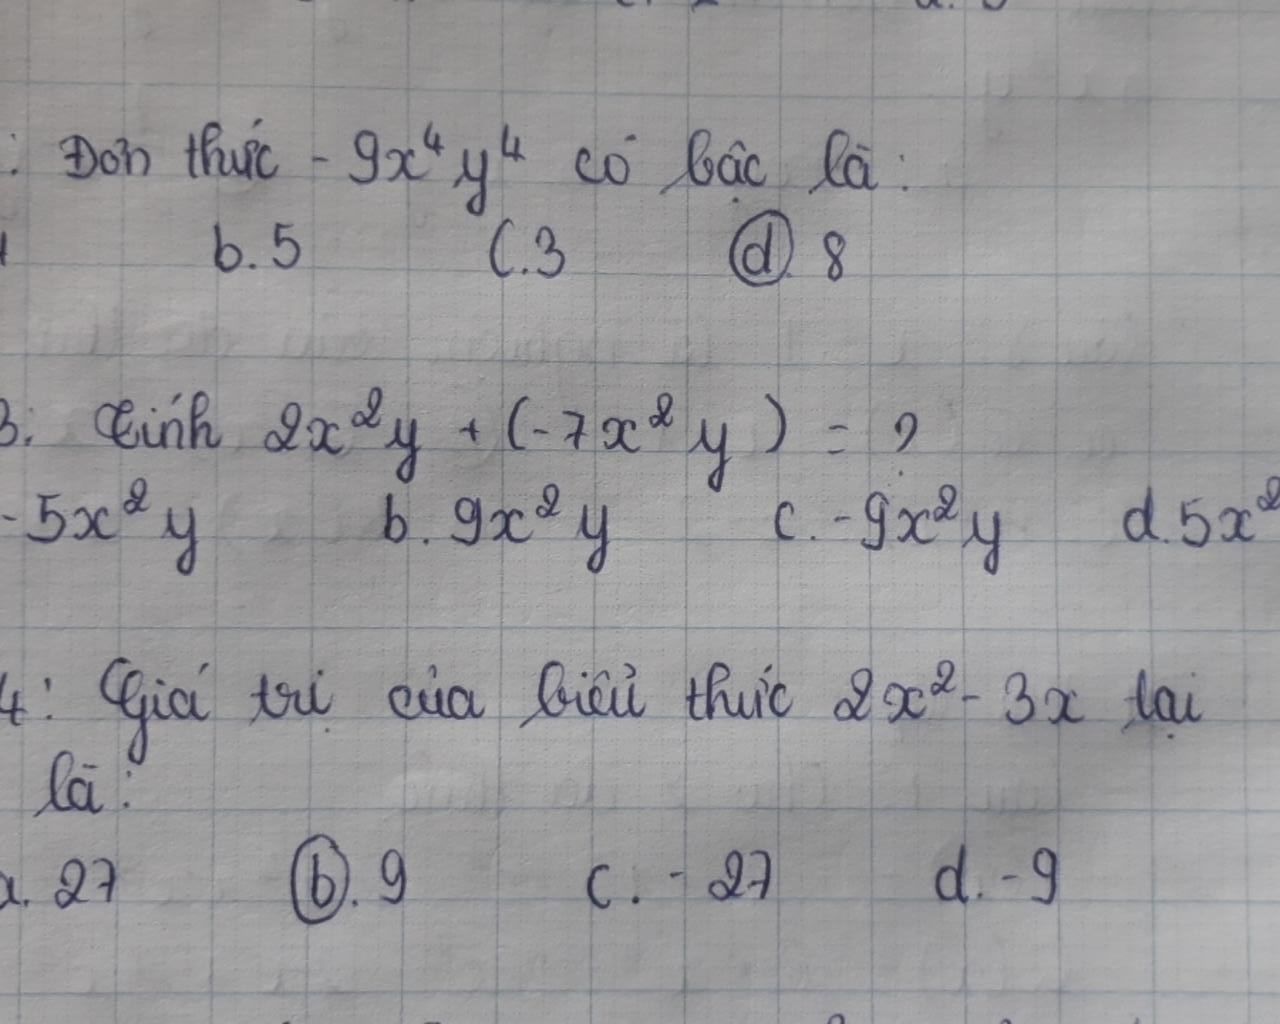 : Đơn thức - 9x⁴y⁴ có bậc là:
b. 5 c. 3 d. 8
3: Tính 2x²y + (-7x²y) = ?
- 5x²y b. 9x²y c. - 9x²y d. 5x²
4: Giá trị của biểu thức 2x² - 3x tại
là:
a. 27 b. 9 c. - 27 d. - 9